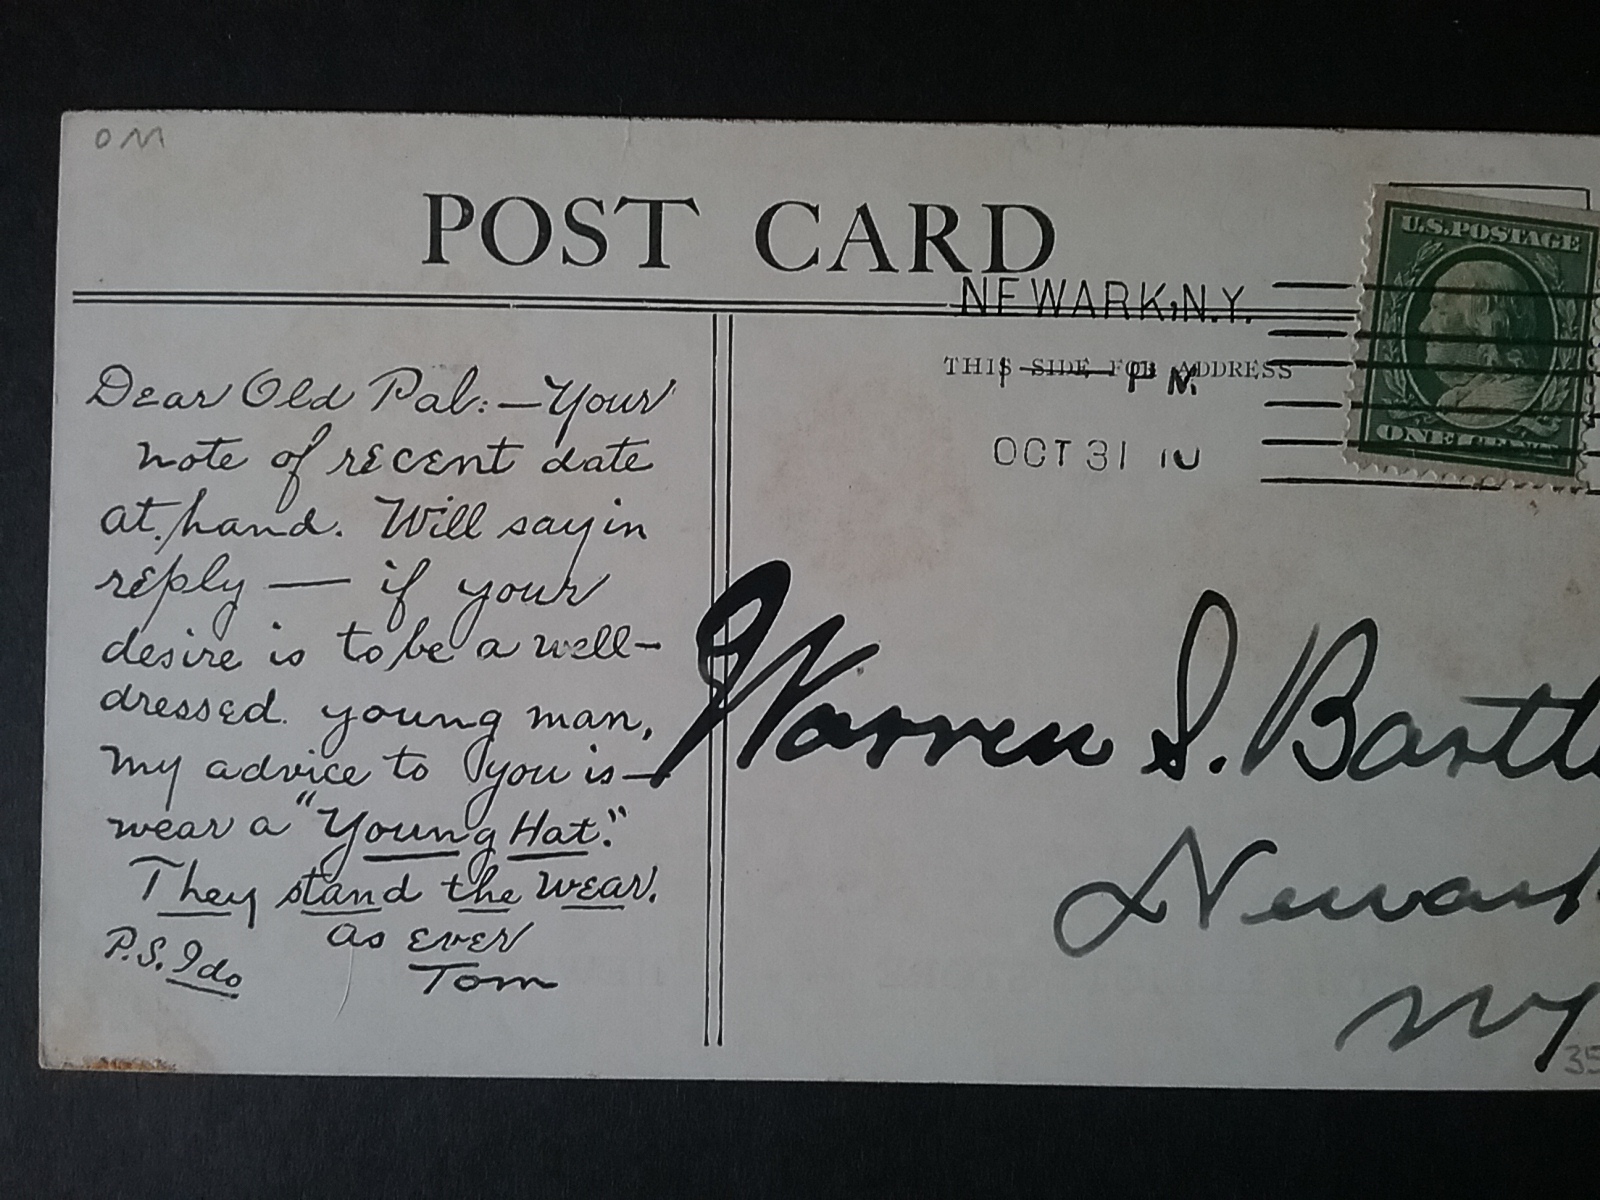 OM
POST CARD
NEWARK, N.Y.
THIS SIDE FOR ADDRESS
1 - PM
OCT 31 10
U.S. POSTAGE
ONE CENT
Dear Old Pal:—Your
note of recent date
at hand. Will say in
reply — if your
desire is to be a well-
dressed young man,
my advice to you is—
wear a "Young Hat."
They stand the wear.
as ever
P.S. I do
Tom
Warren S. Bartl
Newark
NY
35